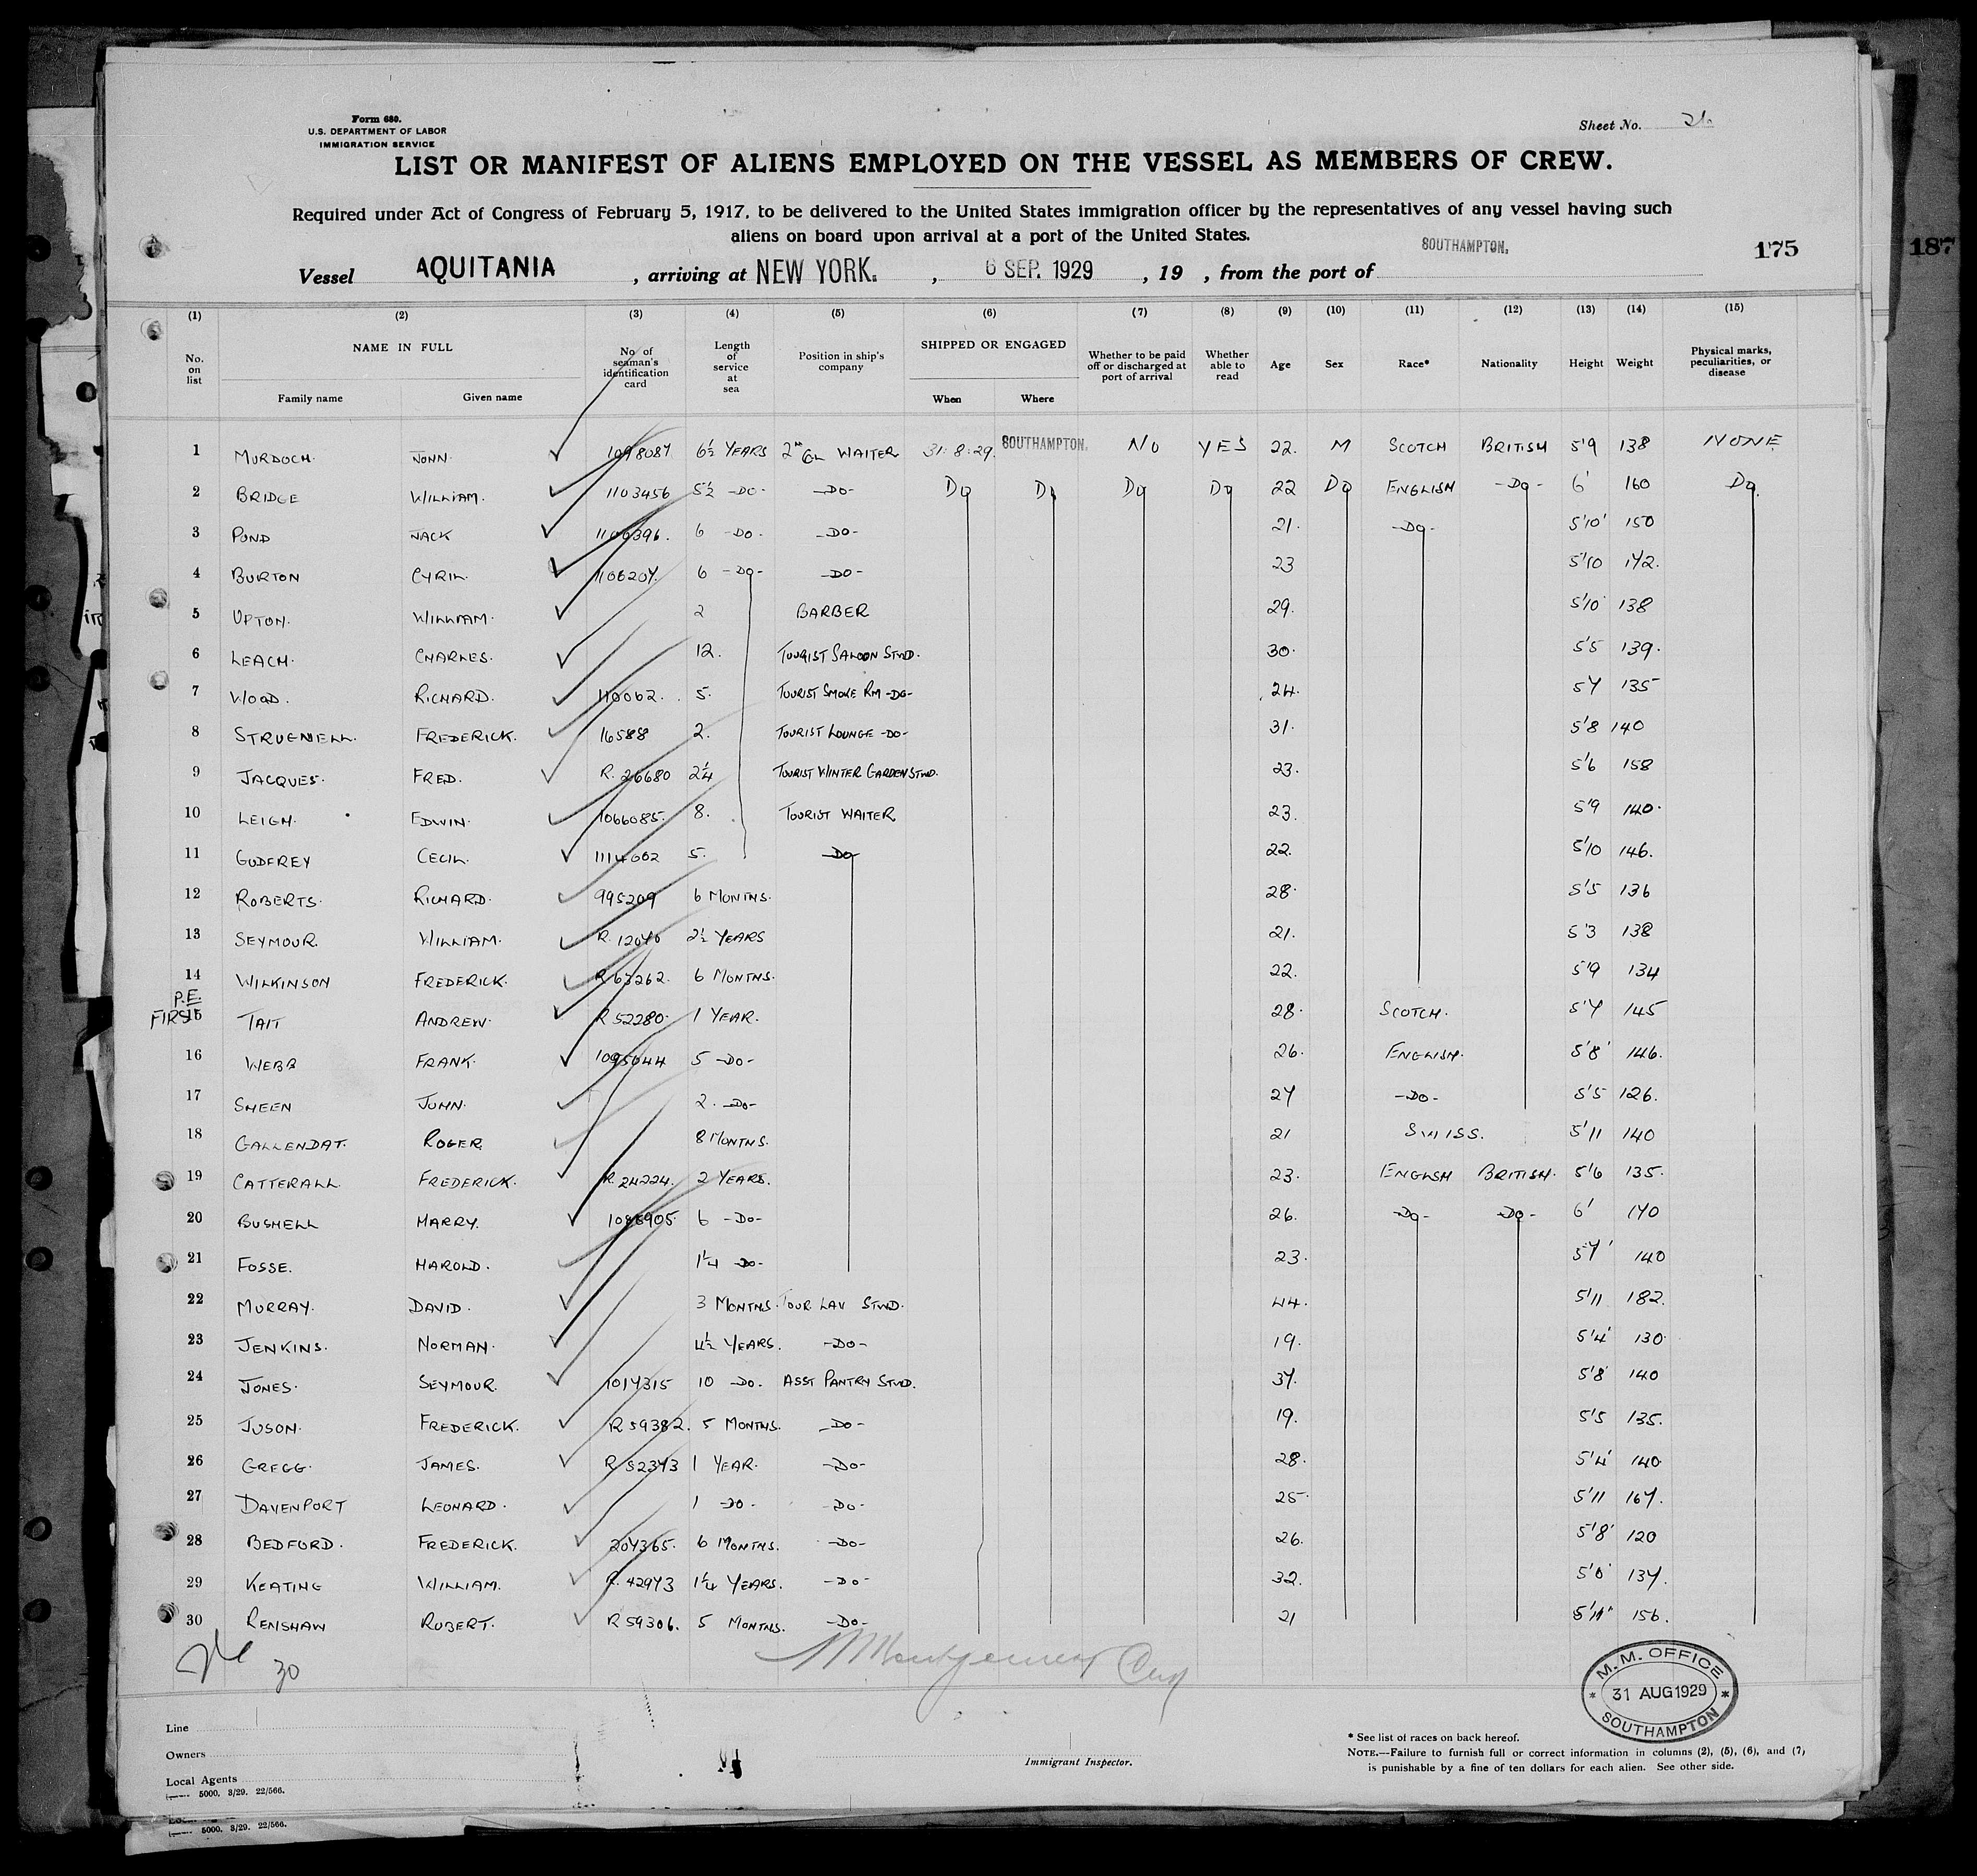 Form 680.
U.S. DEPARTMENT OF LABOR
IMMIGRATION SERVICE
Sheet No. 26
LIST OR MANIFEST OF ALIENS EMPLOYED ON THE VESSEL AS MEMBERS OF CREW.
Required under Act of Congress of February 5, 1917, to be delivered to the United States immigration officer by the representatives of any vessel having such
aliens on board upon arrival at a port of the United States.
175 187
Vessel AQUITANIA, arriving at NEW YORK., 6 SEP. 1929, 19 , from the port of SOUTHAMPTON.
(1) (2) (3) (4) (5) (6) (7) (8) (9) (10) (11) (12) (13) (14) (15)
No. on list NAME IN FULL Family name Given name No of seaman's identification card Length of service at sea Position in ship's company SHIPPED OR ENGAGED When Where Whether to be paid off or discharged at port of arrival Whether able to read Age Sex Race* Nationality Height Weight Physical marks, peculiarities, or disease
1 MURDOCH. JOHN. 1098087 6½ YEARS 2ND CL WAITER 31.8.29. SOUTHAMPTON. NO YES 22. M SCOTCH BRITISH 5'9 138 NONE
2 BRIDGE WILLIAM. 1103456 5½ -DO- -DO- DO DO DO DO 22 DO ENGLISH -DO- 6' 160 DO.
3 POND JACK 1106396. 6 -DO- -DO- 21. -DO- 5'10' 150
4 BURTON CYRIL. 1106207. 6 -DO- -DO- 23 5'10 172.
5 UPTON. WILLIAM. 2 BARBER 29. 5'10' 138
6 LEACH. CHARLES. 12. TOURIST SALOON STWD. 30. 5'5 139.
7 WOOD. RICHARD. 110062. 5. TOURIST SMOKE RM -DO- 24. 5'7 135
8 FREDERICK. 16588 2. TOURIST LOUNGE -DO- 31. 5'8 140
9 JACQUES. FRED. R. 26680 2¼ TOURIST WINTER GARDEN STWD. 23. 5'6 158
10 LEIGH. EDWIN. 1066085. 8. TOURIST WAITER 23. 5'9 140.
11 GODFREY CECIL. 1114002 5. -DO- 22. 5'10 146.
12 ROBERTS. RICHARD. 995209 6 MONTHS. 28. 5'5 136
13 SEYMOUR. WILLIAM. R. 12070 2½ YEARS 21. 5'3 138
14 WILKINSON FREDERICK. R 63262. 6 MONTHS. 22. 5'9 134
P.E.
FIRST
15 TAIT ANDREW. R 52280. 1 YEAR. 28. SCOTCH. 5'7 145
16 WEBB FRANK. 1095044 5 -DO- 26. ENGLISH. 5'8' 146.
17 SHEEN JOHN. 2. -DO- 27 -DO- 5'5 126.
18 GALLENDAT. ROGER 8 MONTHS. 21 SWISS. 5'11 140
19 CATTERALL FREDERICK. R. 24224. 2 YEARS. 23. ENGLSH BRITISH. 5'6 135.
20 BUSHELL HARRY. 1086905. 6 -DO- 26. -DO- -DO- 6' 170
21 FOSSE. HAROLD. 1¼ -DO- 23. 5'7' 140
22 MURRAY. DAVID. 3 MONTHS. TOUR LAV STWD. 44. 5'11 182.
23 JENKINS. NORMAN. 4½ YEARS. -DO- 19. 5'4' 130.
24 JONES. SEYMOUR. 1017315 10 -DO. ASST PANTRY STWD. 37. 5'8' 140
25 JUSON. FREDERICK. R 59382. 5 MONTHS. -DO- 19. 5'5 135.
26 GREGG. JAMES. R 52373 1 YEAR. -DO- 28. 5'4' 140
27 DAVENPORT LEONARD. 1 -DO- -DO- 25. 5'11 167.
28 BEDFORD. FREDERICK. 207365. 6 MONTHS. -DO- 26. 5'8' 120
29 KEATING WILLIAM. R. 42973 1¼ YEARS. -DO- 32. 5'0' 137.
30 RENSHAW ROBERT. R 59306. 5 MONTHS. -DO- 21 5'11" 156.
30
Montgomery
M.M. OFFICE
31 AUG 1929
SOUTHAMPTON
Line
Owners
Local Agents
5000. 3/29. 22/566.
Immigrant Inspector.
* See list of races on back hereof.
NOTE.—Failure to furnish full or correct information in columns (2), (5), (6), and (7),
is punishable by a fine of ten dollars for each alien. See other side.
5000. 3/29. 22/566.